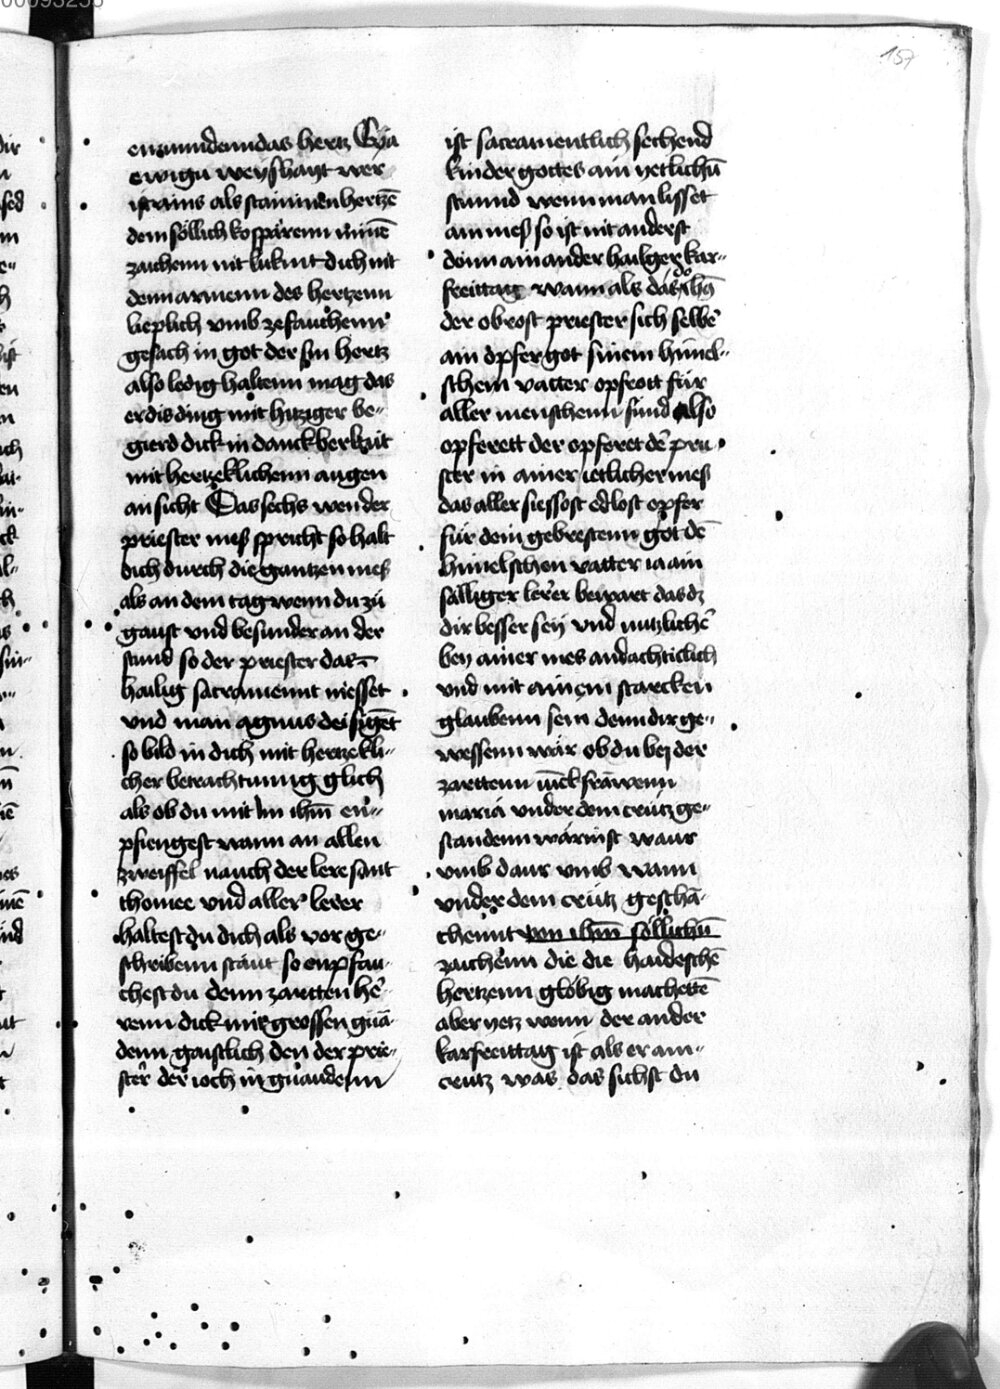 157
enzunndenn das hertz Eya
ewigu weyßhayt wer
ist ains als stainninen hertzē
dem söllich kosparenn minnē
zaichenn nit lukint dich nit
denn armenn des hertzenn
lieplich vmb zefauchenn
gesach in got der sin hertz
also ledig haltenn mag das
er dis ding mit hitziger be-
gierd dick in danckberkait
mit hertzeklichenn augen
ansicht Das sechs wen der
priester mess spricht so halt
dich durch die gantzen mess
als an dem tag wenn du zů
gaust vnd besunder an der
stund so der priester daz
hailig sacramennt niesset
vnd man agnus dei singet
so bild in dich mit hertzekli-
cher betrachtunng glich
als ob du mit im ihm en-
pfiengest wann an allen
zweiffel nauch der lere sant
thomee vnd aller lerer
haltest du dich als vor ge-
schribenn staut so enpfau-
chest du denn zartten he-
renn dick mit grossen gnā-
denn gaistlich den der prie-
ster der ioch in gnaudenn
ist sacramentlich sechend
kinder gottes ain yetlichū
stunnd wenn man lisset
ain mess so ist nit anderst
donn ain ander hailger kar-
freittag wann als das do ihs
der obrost priester sich selbe
ain opfer got sinem himel-
schem vatter opfrott für
aller menschenn sünd Also
opferett der opferet de prie-
ster in ainer ietlicher mess
das aller siessost edlost opfer
für dein gebrestenn got de
himelschen vatter ia ain
sälliger lerer bewart das dz
dir besser sey vnd nutzlicher
bey ainer mes andachticlich
vnd mit ainem starcken
glaubenn sein denn dir ge-
wessenn wär ob du bey der
zarttenn iūckfrawenn
maria vnder dem crütz ge-
standenn wärinst waur
vmb daur vmb wann
vnder dem crütz geschā-
chennt von ihm söllichū
zaichenn die die haideschē
hertzenn glöbig machettē
aber yetz wenn der ander
karfreittag ist als er am
crütz was das sichst du